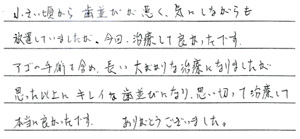 小さい頃から歯並びが悪く、気にしながらも
放置していましたが、今回、治療して良かったです。
アゴの手術も含め、長い大がかりな治療になりましたが
思った以上にキレイな歯並びになり、思い切って治療して
本当に良かったです。 ありがとうございました。